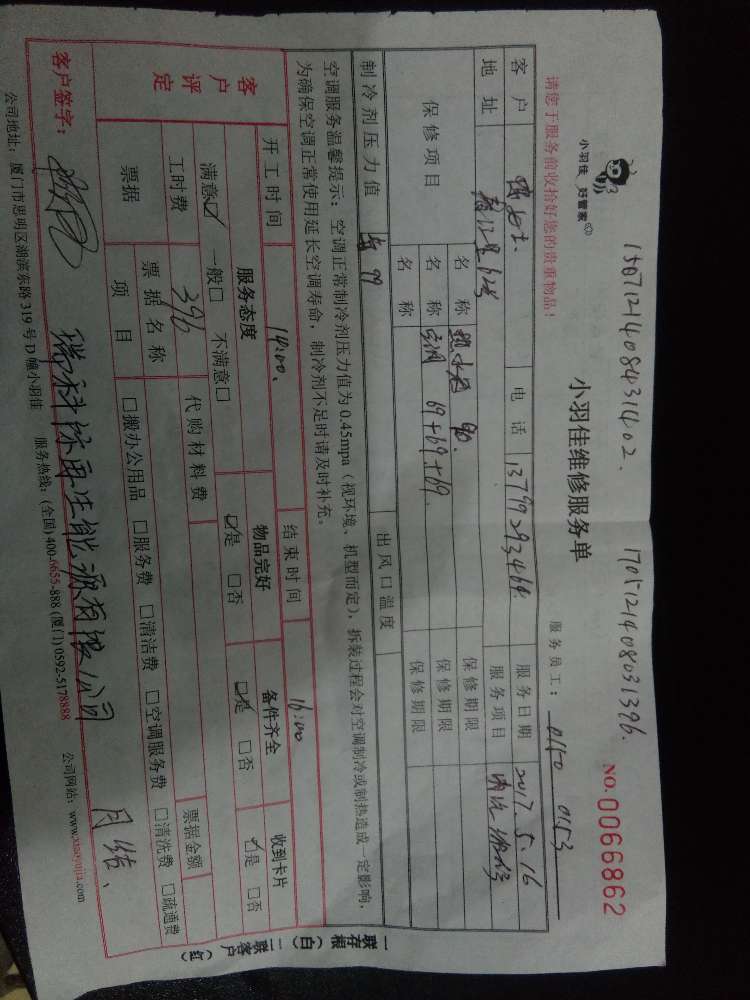 15071214084311402. 1705121408031396.
小羽佳 好管家
小羽佳维修服务单
NO.0066862
请您于服务前收拾好您的贵重物品!
服务员工: 0150 0153
客户 电话 13799293464 服务日期 2017.5.16
地址 服务项目 清洗 维修
保修项目 名称 热水器 90. 保修期限
名称 空调 69+69+69. 保修期限
名称 保修期限
制冷剂压力值 出风口温度
空调服务温馨提示:空调正常制冷剂压力值为0.45mpa(视环境、机型而定),拆装过程会对空调制冷或制热造成一定影响,
为确保空调正常使用延长空调寿命,制冷剂不足时请及时补充。
开工时间 14:00. 结束时间 16:00
客户评定 服务态度 物品完好 备件齐全 收到卡片
满意☑ 一般□ 不满意□ ☑是 □否 ☑是 □否 ☑是 □否
工时费 396 代购材料费 票据金额
票据 票据名称
项目 □搬办公用品 □服务费 □清洁费 □空调服务费 □清洗费 □疏通费
客户签字: 瑞科际再生能源有限公司 月结、
公司地址:厦门市思明区湖滨东路319号D幢小羽佳 服务热线:(全国)400-6655-888 (厦门)0592-5178888 公司网站:www.xiaoyujia.com
一联存根(白) 二联客户(红)